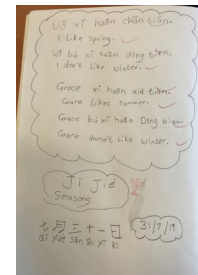 Wǒ xǐ huān chūn tiān.
I Like spring.
Wǒ bù xǐ huān dōng tiān.
I don't Like winter.
Grace xǐ huān xià tiān.
Grace Likes summer.
Grace bù xǐ huān Dōng tiān.
Grace doesn't Like winter.
Jì Jié
Seasons
七月三十一日
Qī Yuè Sān Shí Yī Rì
31/7/19